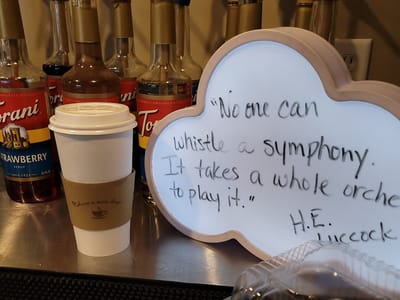 Torani
STRAWBERRY
"No one can
whistle a symphony.
It takes a whole orche
to play it."
H.E.
Luccock